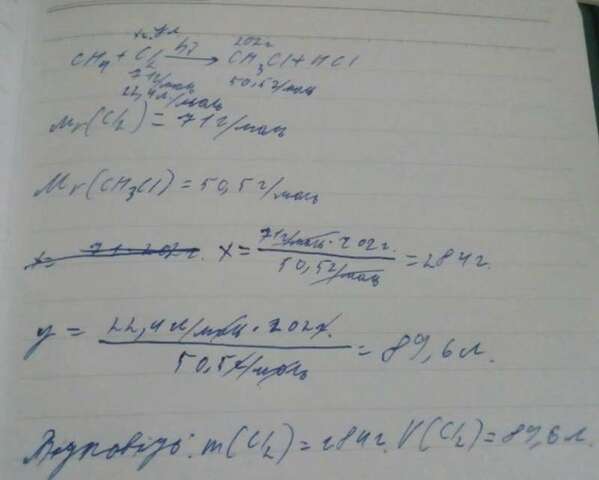 х г. у л 202 г
CH₄ + Cl₂ hν → CH₃Cl + HCl
71 г/моль 50,5 г/моль
22,4 л/моль
Mr(Cl₂) = 71 г/моль
Mr(CH₃Cl) = 50,5 г/моль
x = 71·202 г. x = 71 г/моль · 202 г. / 50,5 г/моль = 284 г.
y = 22,4 л/моль · 202 г. / 50,5 г/моль = 89,6 л.
Відповідь: m(Cl₂) = 284 г. V(Cl₂) = 89,6 л.